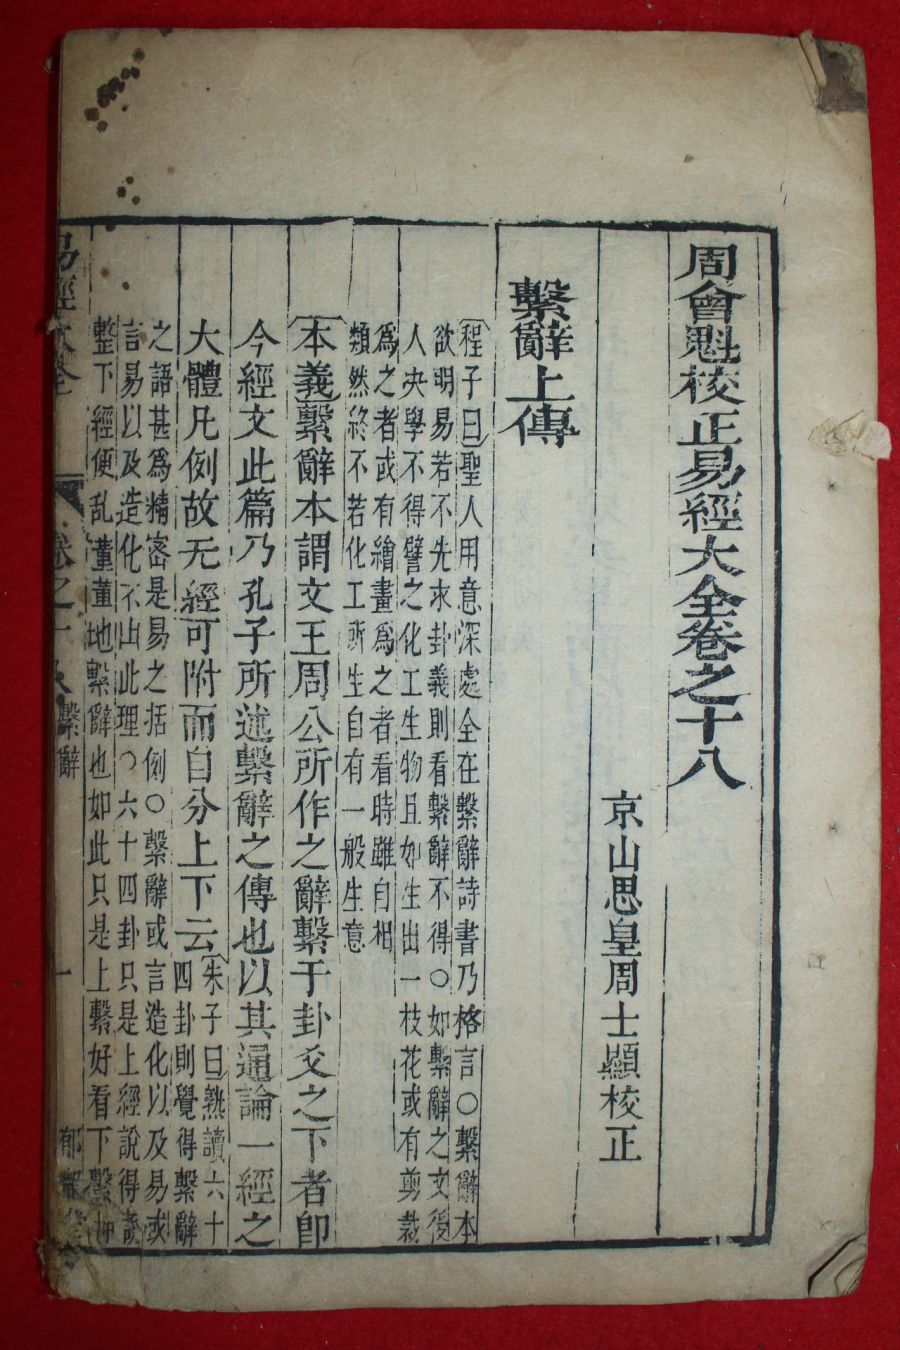 周會魁校正易經大全卷之十八
京山思皇周士顯校正
繫辭上傳
程子曰聖人用意深處全在繫辭詩書乃格言○繫辭本
欲明易若不先求卦義則看繫辭不得○如繫辭之文後
人决學不得譬之化工生物且如生出一枝花或有剪裁
爲之者或有繪畫爲之者看時雖自相
類然終不若化工所生自有一般生意
本義繫辭本謂文王周公所作之辭繫于卦爻之下者即
今經文此篇乃孔子所述繫辭之傳也以其通論一經之
大體凡例故无經可附而自分上下云
朱子曰熟讀六十
四卦則覺得繫辭
之語甚爲精密是易之括例○繫辭或言造化以及易或
言易以及造化不出此理○六十四卦只是上經說得齊
整下經便乱董董地繫辭也如此只是上繫好看下繫
易經大全
卷之十八
繫辭
一